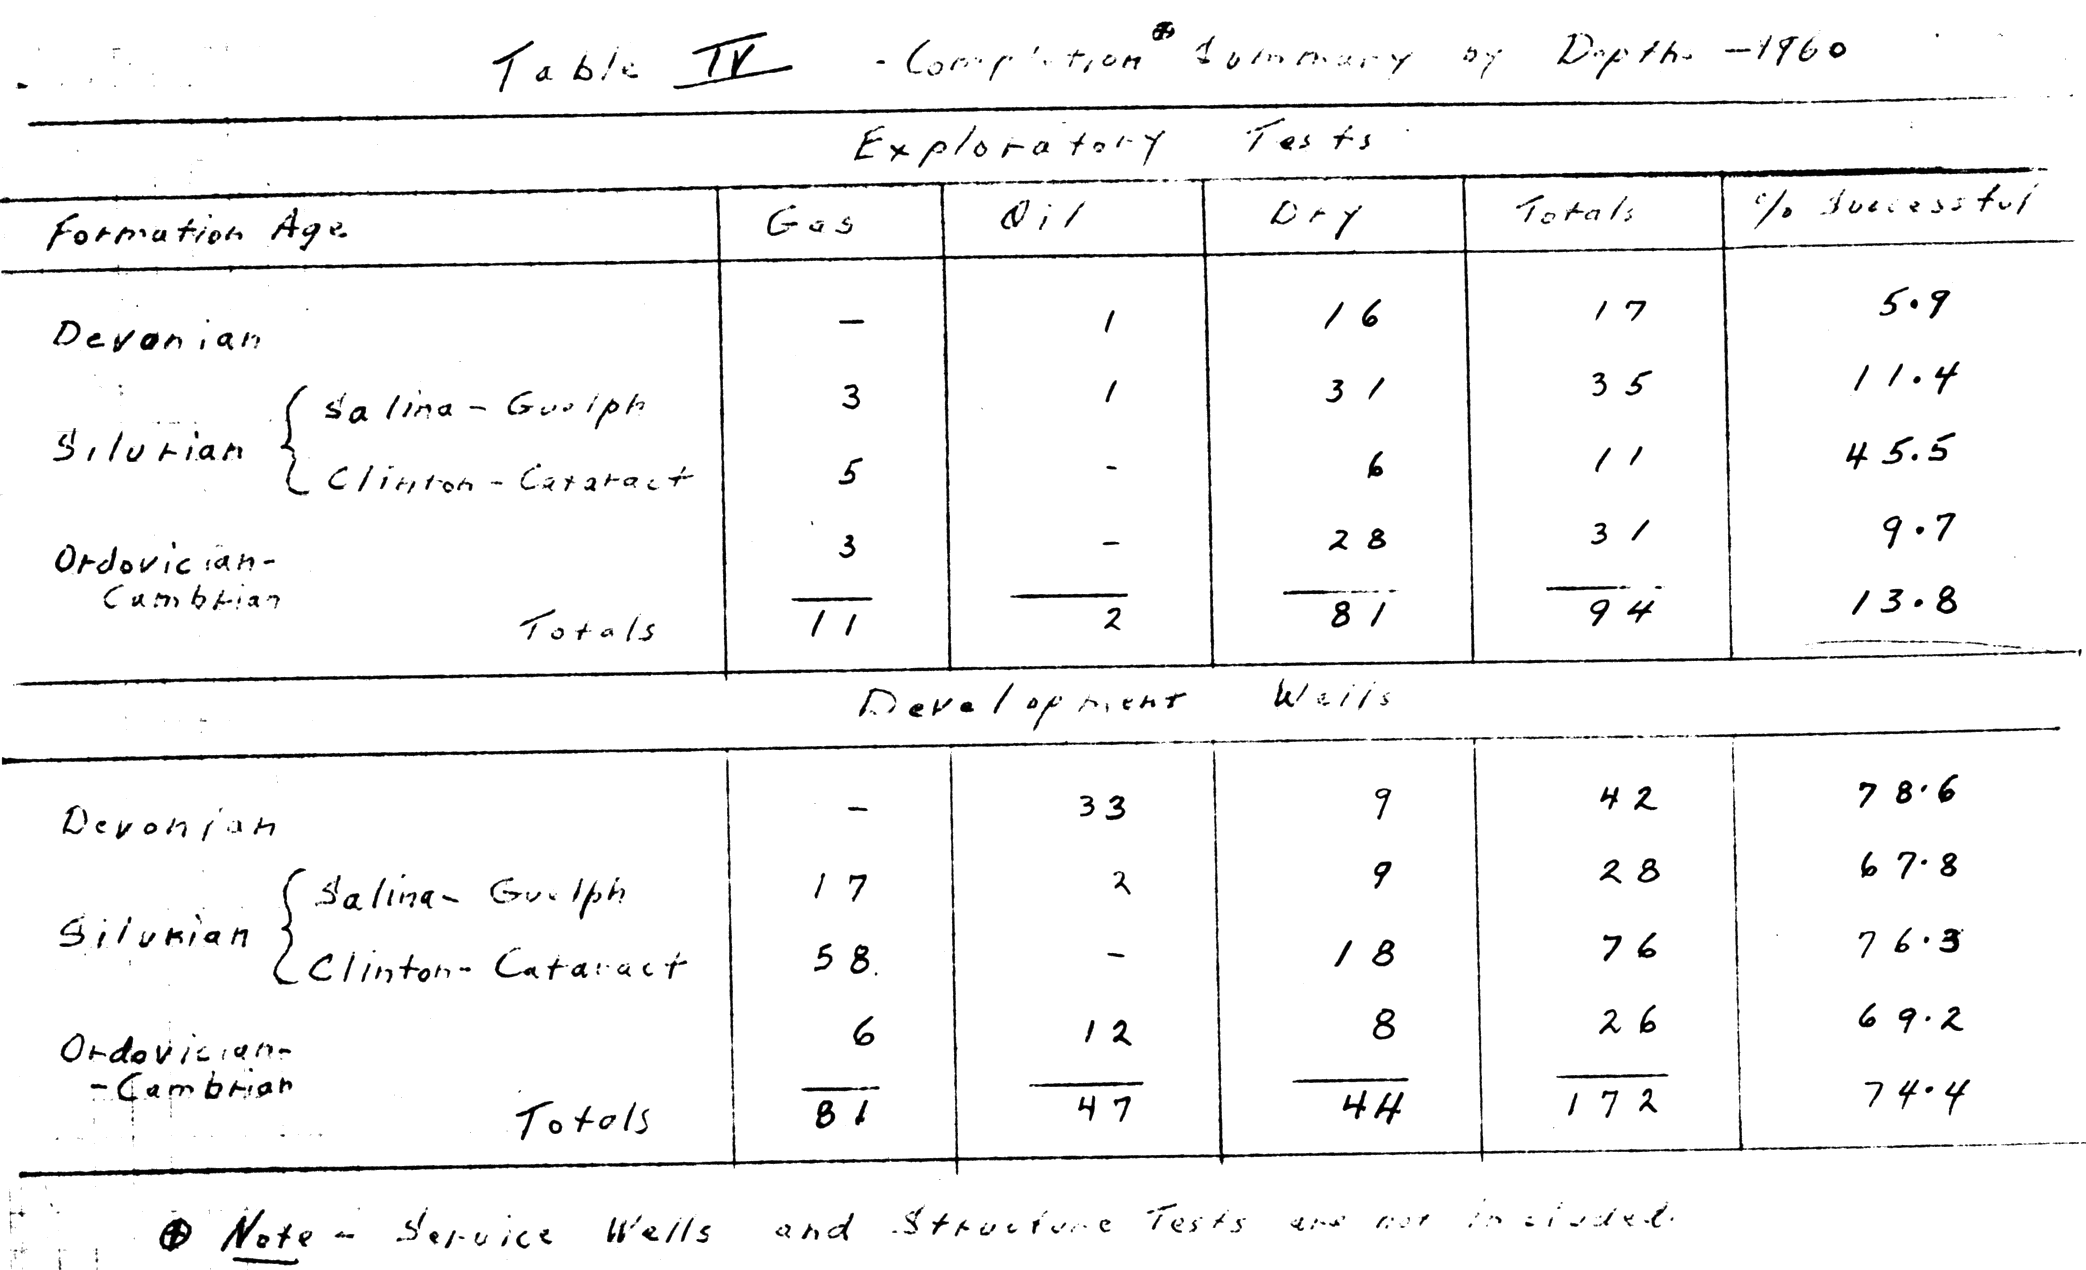 Table IV - Completion⊕ Summary by Depths - 1960
Exploratory Tests
Formation Age Gas Oil Dry Totals % Successful
Devonian — 1 16 17 5.9
Salina - Guelph 3 1 31 35 11.4
Silurian
Clinton - Cataract 5 - 6 11 45.5
Ordovician- 3 - 28 31 9.7
Cambrian
Totals 11 2 81 94 13.8
Development Wells
Devonian - 33 9 42 78.6
Salina- Guelph 17 2 9 28 67.8
Silurian
Clinton- Cataract 58 - 18 76 76.3
Ordovician- 6 12 8 26 69.2
-Cambrian
Totals 81 47 44 172 74.4
⊕ Note - Service Wells and Structure Tests are not included.